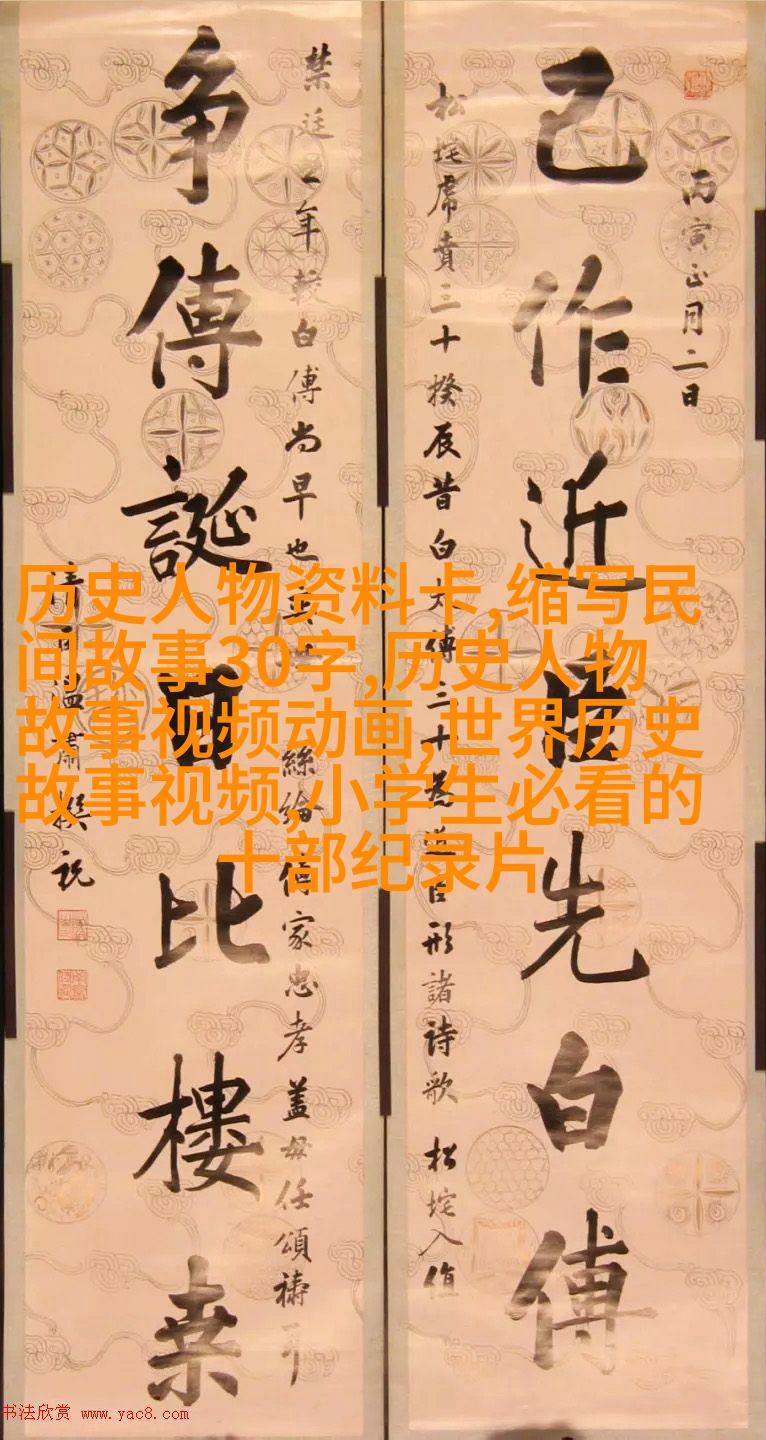 丙寅正月二日
己作近先白傅
松垞席賁三十揆辰昔白太傅三十為近臣形諸詩歌 松垞入值
禁廷年較白傅尚早也
絲綸傳家忠孝蓋毋任頌禱耳
争傳誕日比樓桑
溫肅撰祝
历史人物资料卡,缩写民
间故事30字,历史人物
故事视频动画,世界历史
故事视频,小学生必看的
十部纪录片
书法欣赏 www.yac8.com